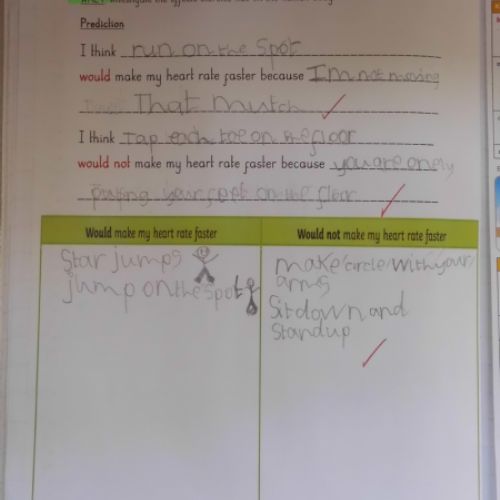 Prediction
I think run on the spot
would make my heart rate faster because I'm not moving
That mutch
I think Tap each toe on the floor
would not make my heart rate faster because you are onely
puting your foot on the floor
Would make my heart rate faster
Would not make my heart rate faster
Star jumps
jump on the spot
make circle with your
arms
Sit down and
stand up